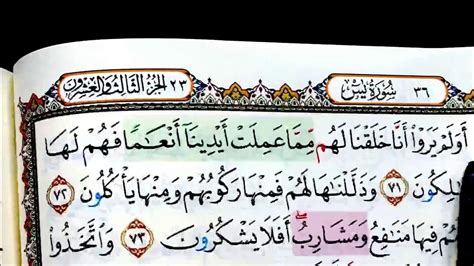 ٣٦ سُورَةُ يسٓ الجُزْءُ الثَّالِثُ وَالعِشْرُونَ ٢٣
أَوَلَمْ يَرَوْا۟ أَنَّا خَلَقْنَا لَهُم مِّمَّا عَمِلَتْ أَيْدِينَآ أَنْعَـٰمًا فَهُمْ لَهَا
مَـٰلِكُونَ ٧١ وَذَلَّلْنَـٰهَا لَهُمْ فَمِنْهَا رَكُوبُهُمْ وَمِنْهَا يَأْكُلُونَ ٧٢
فِيهَا مَنَـٰفِعُ وَمَشَارِبُ ۖ أَفَلَا يَشْكُرُونَ ٧٣ وَٱتَّخَذُوا۟